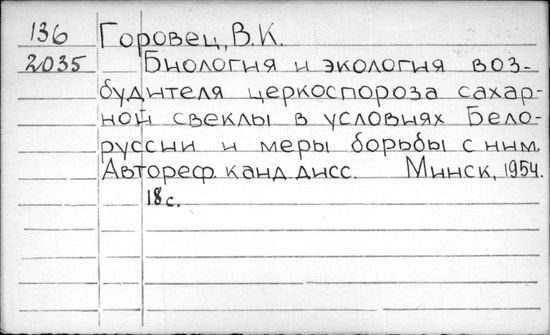 136 Горовец, В.К.
2035 Биология и экология воз-
будителя церкоспороза сахар-
ной свеклы в условиях Бело-
руссии и меры борьбы с ним.
Автореф. канд. дисс. Минск, 1954.
18 с.